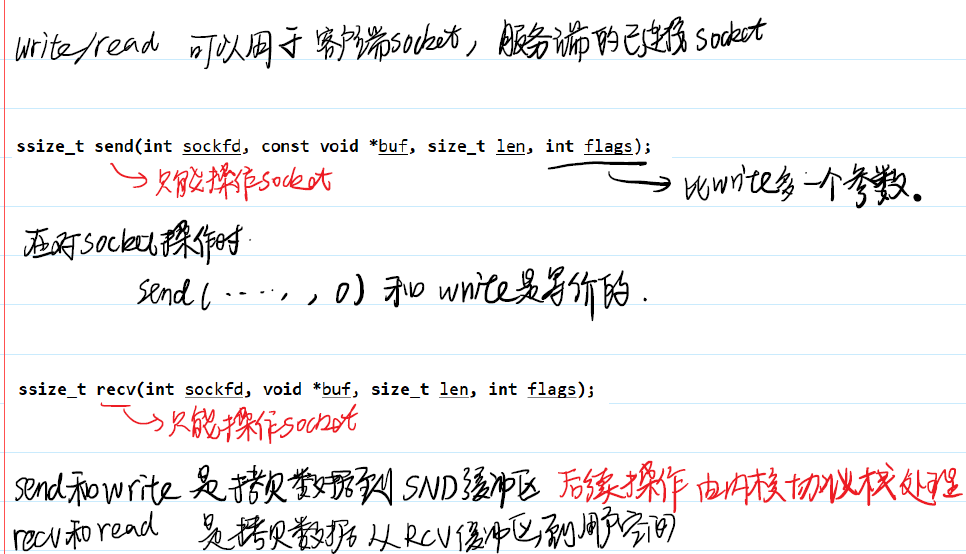 write/read 可以用于 客户端socket，服务端的已连接socket
ssize_t send(int sockfd, const void *buf, size_t len, int flags);
只能操作socket
比write多一个参数。
在对socket操作时
send(....., , 0) 和 write是等价的.
ssize_t recv(int sockfd, void *buf, size_t len, int flags);
只能操作socket
send和write 是拷贝数据到 SND缓冲区 后续操作 由内核协议栈处理
recv和read 是拷贝数据 从RCV缓冲区到用户空间